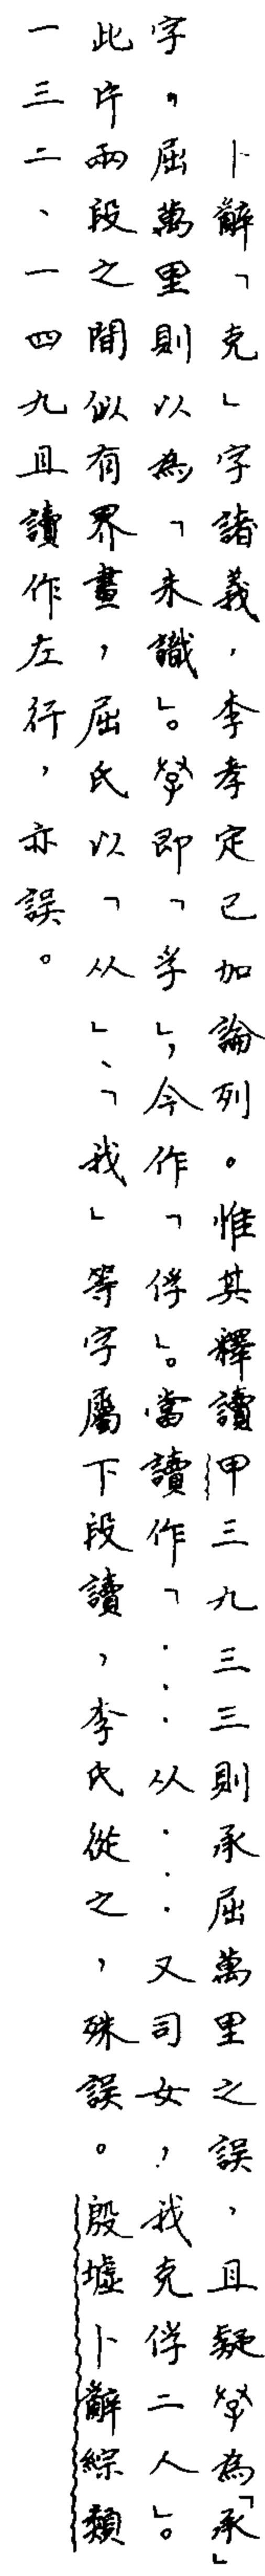 卜辭「克」字諸義，李孝定已加論列。惟其釋讀甲三九三三則承屈萬里之誤，且疑為「承」
字，屈萬里則以為「未識」。即「孚」，今作「俘」。當讀作「……从……又司女，我克俘二人」。
此片兩段之間似有界畫，屈氏以「从」、「我」等字屬下段讀，李氏從之，殊誤。殷墟卜辭綜類
一三二、一四九且讀作左行，亦誤。